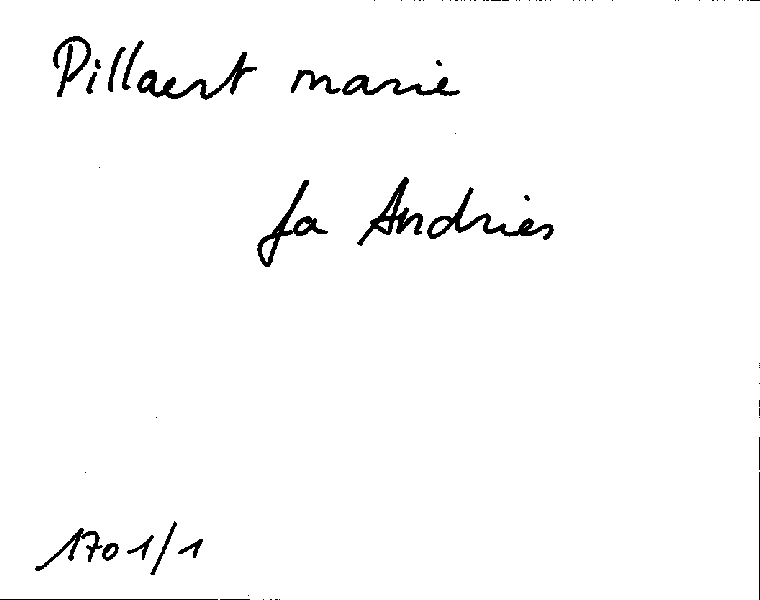 Pillaert marie
fa Andries
1701/1